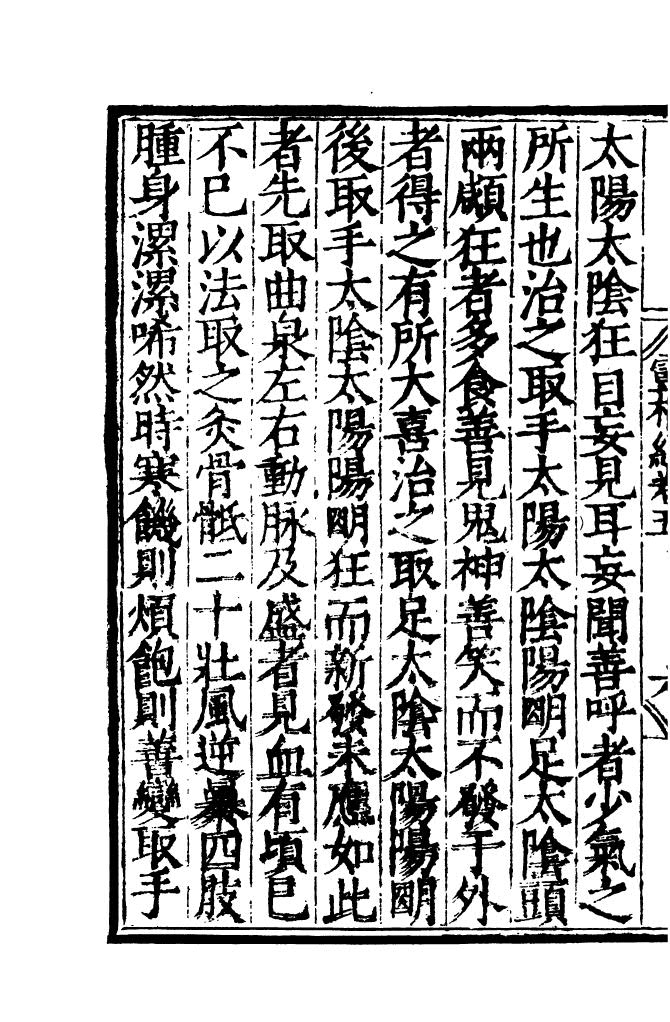 太陽太陰狂目妄見耳妄聞善呼者少氣之
所生也治之取手太陽太陰陽明足太陰頭
兩顑狂者多食善見鬼神善笑而不發于外
者得之有所大喜治之取足太陰太陽陽明
後取手太陰太陽陽明狂而新發未應如此
者先取曲泉左右動脉及盛者見血有頃已
不已以法取之灸骨骶二十壯風逆暴四肢
腫身漯漯唏然時寒饑則煩飽則善變取手